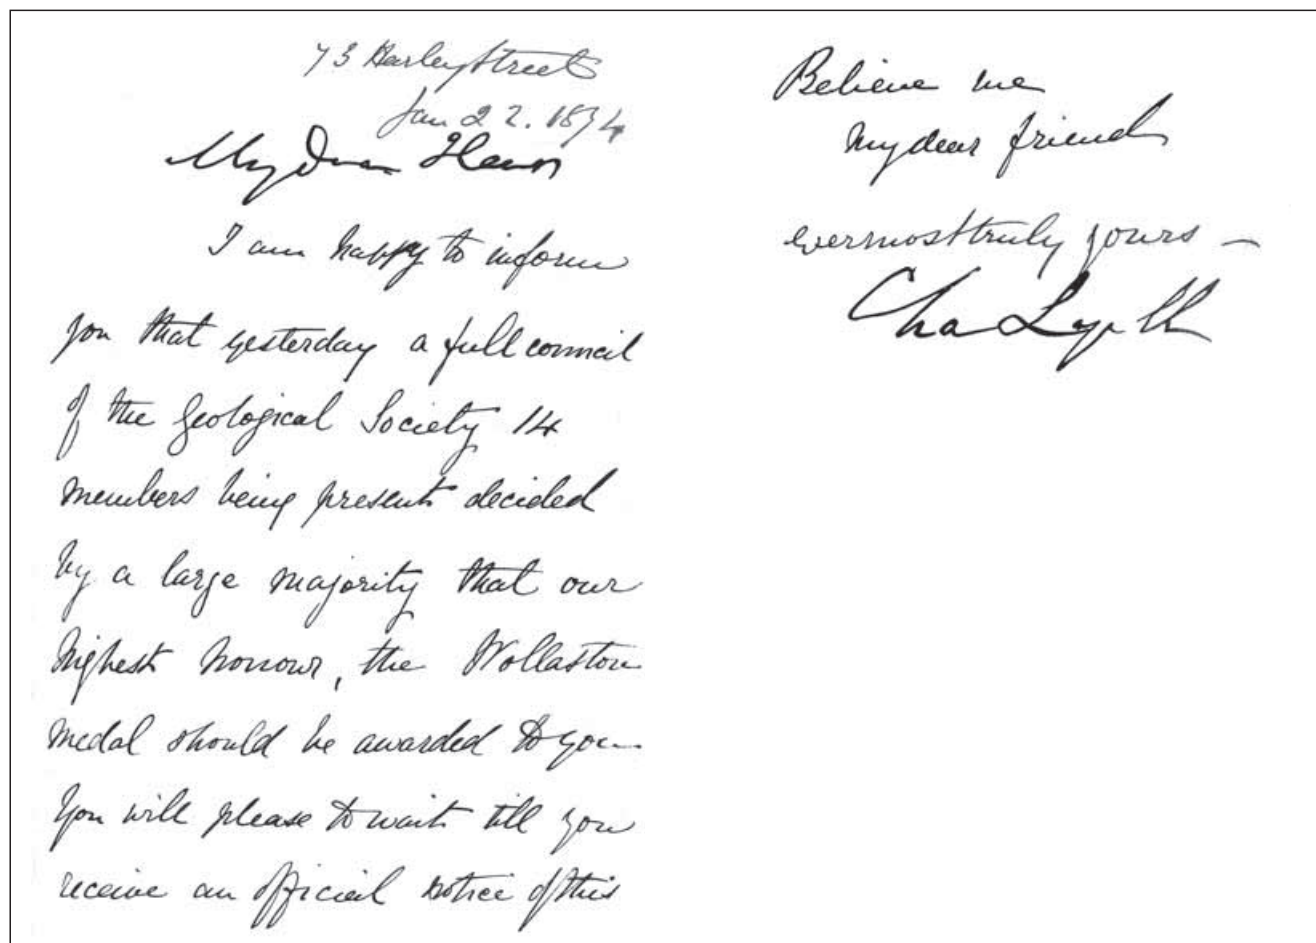 73 Harley Street
Jan 22. 1874
My Dear Heer
I am happy to inform
you that yesterday a full council
of the Geological Society 14
members being present decided
by a large majority that our
highest honour, the Wollaston
medal should be awarded to you
You will please to wait till you
receive an official notice of this
Believe me
my dear friend
ever most truly yours –
Cha Lyell